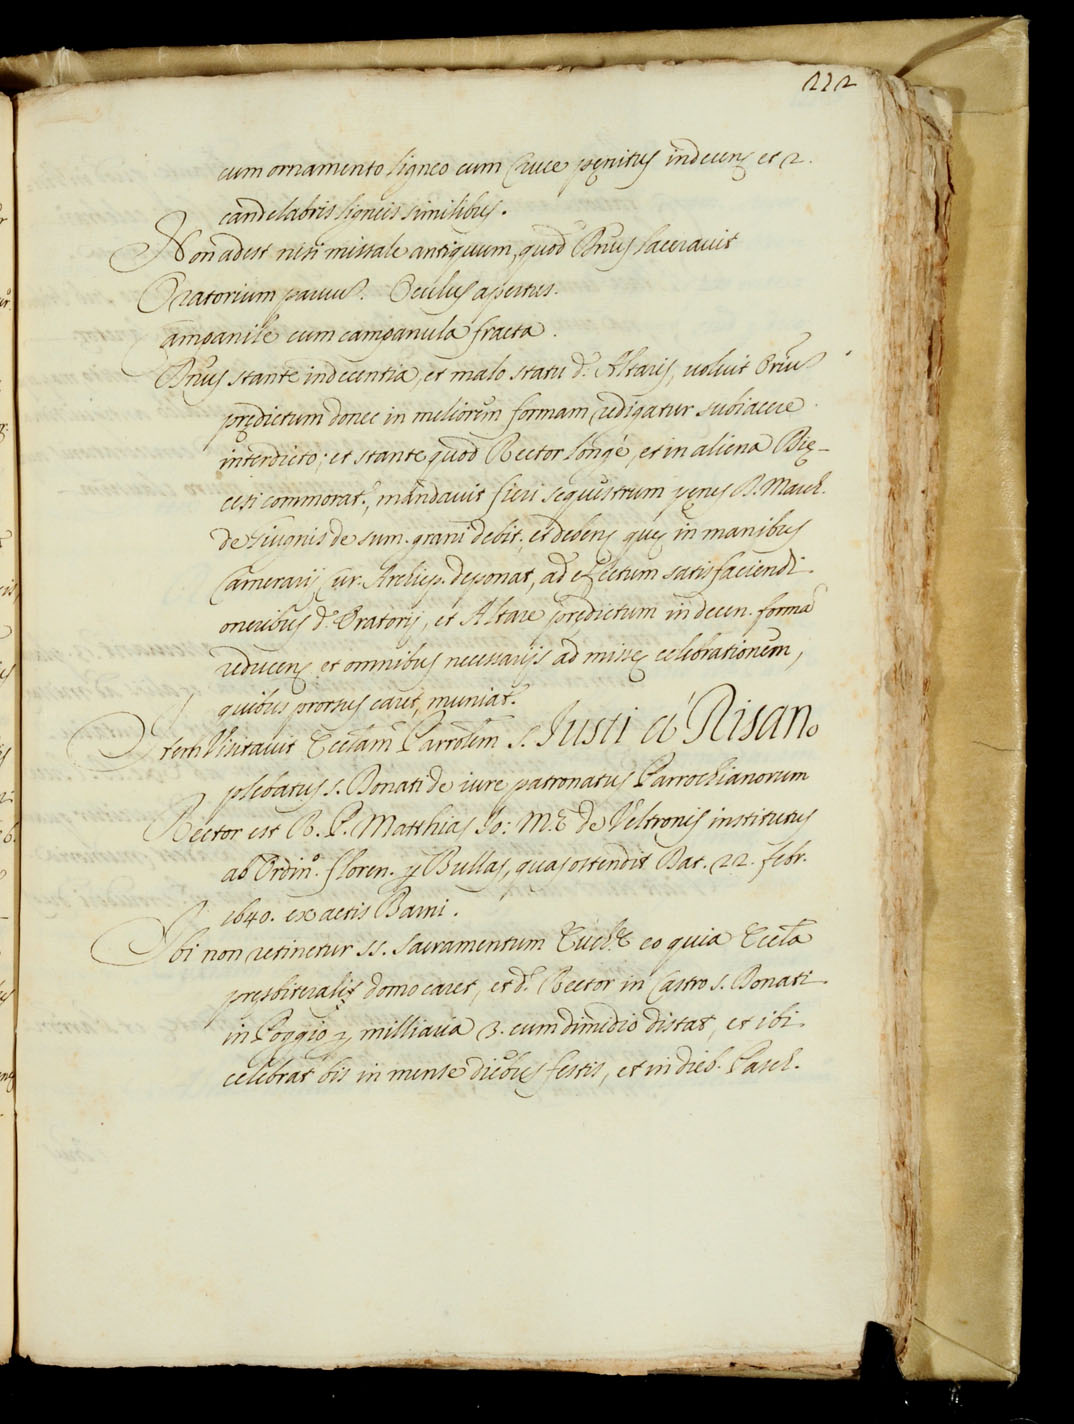 222
cum ornamento ligneo cum Cruce penitus indecens et 2.
candelabris ligneis similibus.
Non adest nisi missale antiquum, quod Dnus laceravit
Oratorium parvum. Oculus apertus.
Campanile cum campanula fracta.
Dnus stante indecentia, et malo statu d. Altaris, voluit Orium
prędictum donec in meliorem formam redigatur subiacere
interdicto; et stante quod Rector longè, et in aliena Dię-
cesi commorat.r, mandavit fieri sequestrum penes D. March.
de de sum. grani debit. et debens que in manibus
Camerarij Cur. Archiep. deponat, ad effectum satisfaciendi
oneribus d. Oratorij, et Altare prędictum in decen. formã
reducens et omnibus necessarijs ad missę celebrationem,
quibus prorsus caret, muniat.r
Visitavit Eccłam Parrolem S. Iusti à Risano
plebatus s. Donati de iure patronatus Parrochianorum
Rector est R. P. Matthias Io: de Veltronis institutus
ab Ordin.o floren. p Bullas, quas ostendit Dat. 22. febr.
1640. ex actis Barni.
Ibi non retinetur ss. sacramentum eo quia Eccła
presbiteralis domo caret, et d. Rector in Castro s. Donati
in Poggio p milliaria 3. cum dimidio distat, et ibi
celebrat bis in mense diebus festis, et in dieb. Pasch.